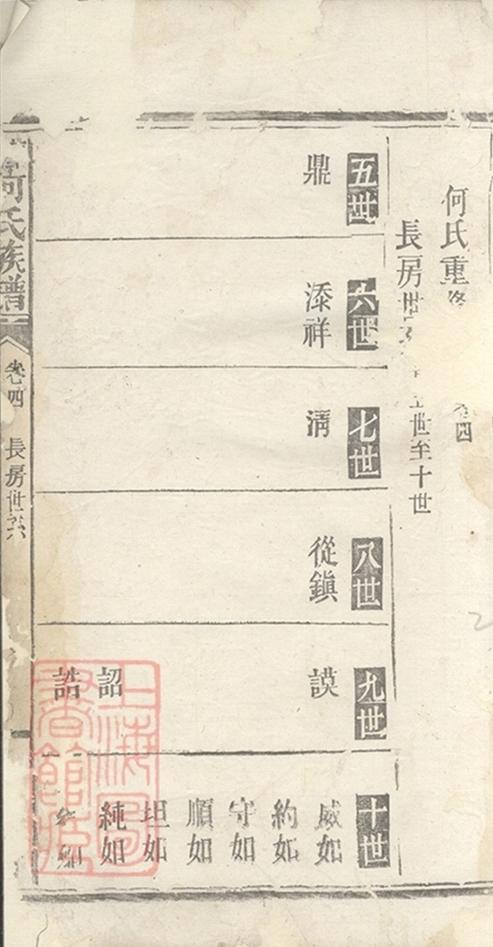 何氏重修
四
長房世系
五世至十世
五世
鼎
六世
添祥
七世
清
八世
從鎮
九世
謨
詔
誥
十世
威如
約如
守如
順如
坦如
純如
如
何氏族譜
卷四
長房世系
上海圖書館藏